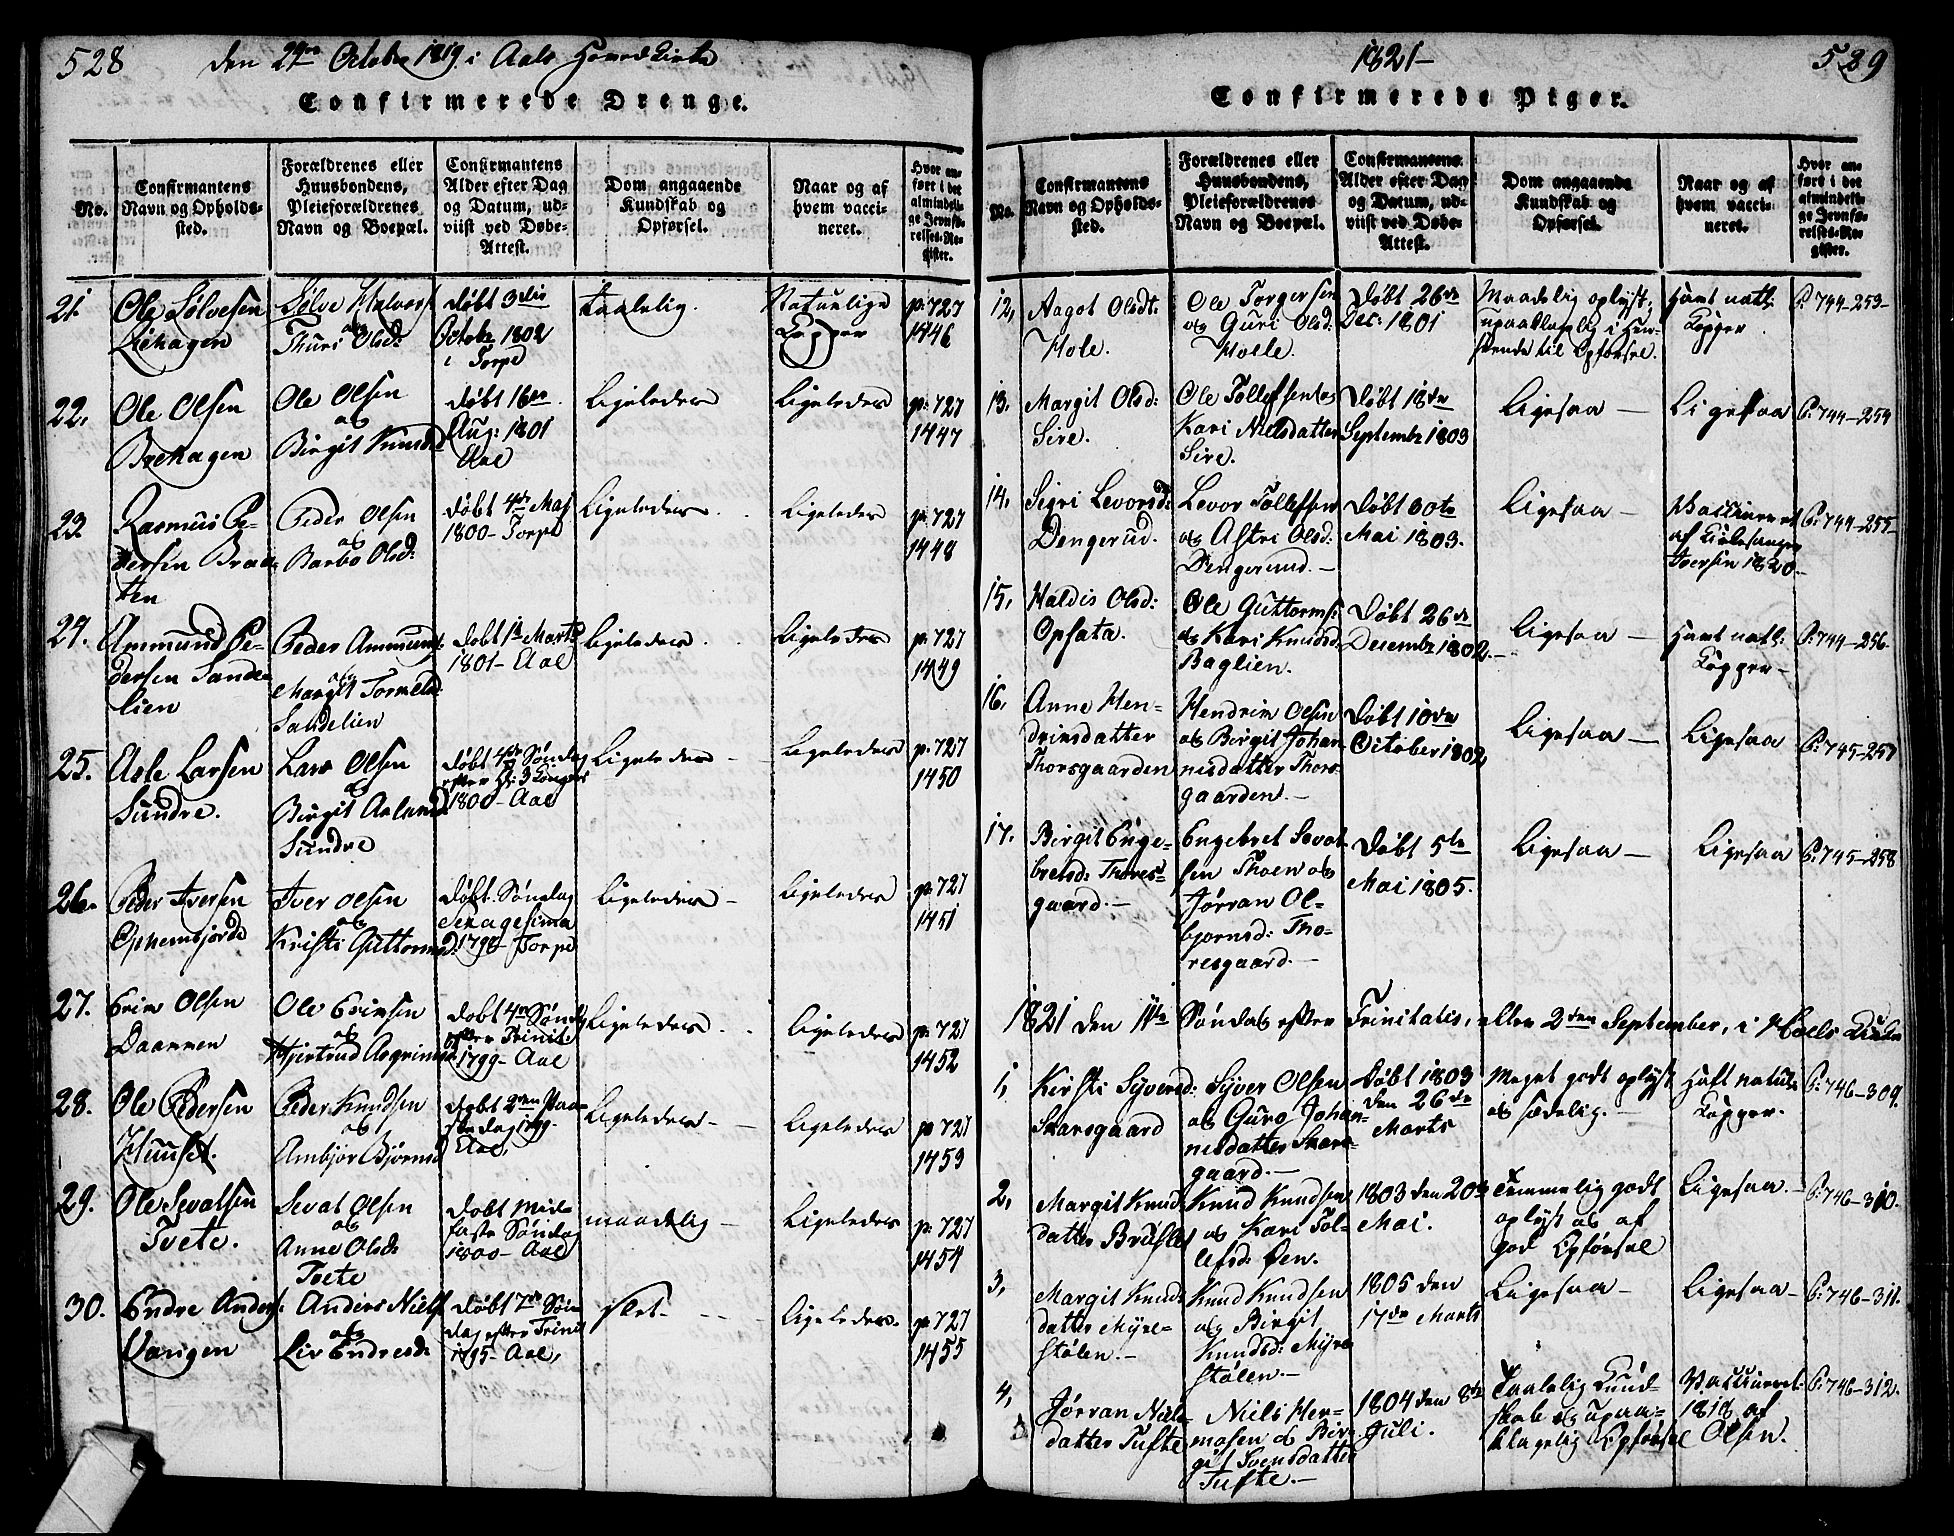 528 den 24de October 1819 i Aals Hovedkirke
Confirmerede Drenge.
No.
Confirmantens Navn og Opholds-sted.
Forældrenes eller Huusbondens, Pleieforældrenes Navn og Boepæl.
Confirmantens Alder efter Dag og Datum, ud-viist ved Døbe-Attest.
Dom angaaende Kundskab og Opførsel.
Naar og af hvem vacci-neret.
Hvor an-ført i det almindeli-ge Jevnfø-relses-Re-gister.
21. Ole Sølvesen
Liehagen
Sølve Halvors
og
Thuri Olsd:
døbt 3die
October 1802
i Torpe
taalelig.
Naturlige
Kopper
p: 727
1446
22. Ole Olsen
Brehagen
Ole Olsen
og
Birgit Knudsd
døbt 16de
Aug: 1801
Aal
Ligeledes
Ligeledes
p: 727
1447
23 Rasmus Pe-
dersen Braa-
ten
Peder Olsen
og
Barbo Olsd:
døbt 4de Maj
1800 - Torpe
Ligeledes
Ligeledes
p: 727
1448
24. Ammund Pe-
dersen Sande-
lien
Peder Ammunds:
og
Margit Tormelsd
Sandelien
døbt 1te Marts
1801 - Aal
Ligeledes
Ligeledes
p: 727
1449
25. Asle Larsen
Sundre.
Lars Olsen
og
Birgit Aslesd
Sundre
døbt 4de Søndag
efter H: 3 Konger
1800 - Aal
Ligeledes -
Ligeledes
p: 727
1450
26. Peder Iversen
Opheimsjorde
Iver Olsen
og
Kristi Guttormsd:
døbt Søndag
Sexagesima
1798 - Torpe
Ligeledes -
Ligeledes
p: 727
1451
27. Erik Olsen
Daannen
Ole Eriksen
og
Hjertrud Asgrimsd
døbt 4de Søndag
efter Trinit:
1799 - Aal
Ligeledes
Ligeledes
p: 727
1452
28. Ole Pedersen
Huuset.
Peder Knudsen
og
Ambjør Bjørnsd
døbt 2den Paa-
skedag 1799.
Aal,
Ligeledes -
Ligeledes
p: 727
1453
29. Ole Sevatsen
Tvete.
Sevat Olsen
og
Anne Olsd:
Tvete
døbt Mid-
faste Søndag
1800 - Aal
maadelig -
Ligeledes
p: 727
1454
30. Endre Anders:
Varigen
Anders Niels:
og
Liv Endresd:
døbt 7de Søn-
dag efter Trinit
1795 - Aal,
slet -
Ligeledes.
p: 727
1455
1821 - 529
Confirmerede Piger.
No.
Confirmantens Navn og Opholds-sted.
Forældrenes eller Huusbondens, Pleieforældrenes Navn og Boepæl.
Confirmantens Alder efter Dag og Datum, ud-viist ved Døbe-Attest.
Dom angaaende Kundskab og Opførsel.
Naar og af hvem vacci-neret.
Hvor an-ført i det almindeli-ge Jevnfø-relses-Re-gister.
12, Aagot Olsdt:
Hole.
Ole Torgersen
og Guri Olsd.
Holle.
Døbt 26de
Dec: 1801
Maadelig oplyst,
upaaklagelig i Hen-
seende til Opførsel.
Havt natl:
Kopper
P: 744-253-
13, Margit Olsd:
Sire.
Ole Tollefsen og
Kari Nielsdatter
Sire.
Døbt 18de
Septembr 1803
Ligesaa -
Ligesaa
P: 744-254
14, Sigri Levorsd:
Dengerud.
Levor Tollefsen
og Astri Olsd:
Dengerud. -
Døbt 30te
Mai 1803.
Ligesaa -
Vaccineret
af Kirkesanger
Iversen 1820-
P: 744-255-
15, Haldis Olsd:
Opsata.
Ole Guttorms:
og Kari Knudsd:
Baglien.
Døbt 26de
Decembr 1802. -
Ligesaa -
Havt natl:
Kopper -
P: 744-256-
16, Anne Hen-
driksdatter
Thorsgaarden
Hendrik Olsen
og Birgit Johan-
nisdatter Thors-
gaarden. -
Døbt 10de
October 1802,
Ligesaa -
Ligesaa
P: 745-257
17, Birgit Enge-
bretsd: Thores-
gaard. -
Engebret Sevat-
sen Thoen og
Jørran Ol-
bjornsd: Tho-
resgaard. -
Døbt 5te
Mai 1805.
Ligesaa -
Ligesaa
P: 745-258
1821 den 11te Søndag efter Trinitatis, eller 2den September, i Hols Kirke
1, Kirsti Syversd:
Skarsgaard
Syver Olsen
og Guro Johan-
nisdatter Skars-
gaard. -
Døbt 1803
den 26de
Marts
Meget godt oplyst
og sædelig. -
Haft naturl:
Kopper.
P: 746-309.
2, Margit Knud-
datter Bruslet
Knud Knudsen
og Kari Tol-
lefsd: Øen.
1803 den 20de
Mai.
Temmelig godt
oplyst og af
god Opførsel
Ligesaa. -
P: 746-310.
3, Margit Knud-
datter Myre-
stølen. -
Knud Knudsen
og Birgit
Knudsd: Myre
stølen. -
1805 den
17de Marts
Ligesaa -
Ligesaa -
P: 746-311.
4, Jørran Niels-
datter Tufte
Niels Her-
mosen og Bir-
git Svensdatter
Tufte. -
1804 den 8de
Juli.
Taalelig Kund-
skab og upaa-
klagelig Opførsel
Vaccineret
1818 af
Olsen.
P: 746-312.